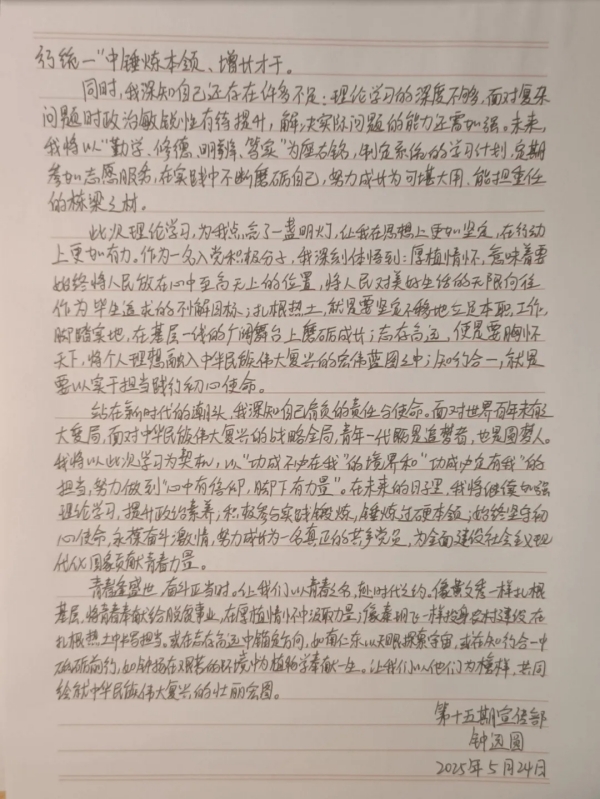 行统一”中锤炼本领、增长才干。
同时,我深知自己还存在许多不足:理论学习的深度不够,面对复杂
问题时政治敏锐性有待提升,解决实际问题的能力还需加强。未来,
我将以“勤学、修德、明辨、笃实”为座右铭,制定系统的学习计划,定期
参加志愿服务,在实践中不断磨砺自己,努力成长为可堪大用、能担重任
的栋梁之材。
此次理论学习,为我点亮了一盏明灯,让我在思想上更加坚定,在行动
上更加有力。作为一名入党积极分子,我深刻体悟到:厚植情怀,意味着要
始终将人民放在心中至高无上的位置,将人民对美好生活的无限向往
作为毕生追求的不懈目标;扎根热土,就是要坚定不移地立足本职工作,
脚踏实地,在基层一线的广阔舞台上磨砺成长;志存高远,便是要胸怀
天下,将个人理想融入中华民族伟大复兴的宏伟蓝图之中;知行合一,就是
要以实干担当践行初心使命。
站在新时代的潮头,我深知自己肩负的责任与使命。面对世界百年未有之
大变局,面对中华民族伟大复兴的战略全局,青年一代既是追梦者,也是圆梦人。
我将以此次学习为契机,以“功成不必在我”的境界和“功成必定有我”的
担当,努力做到“心中有信仰,脚下有力量”。在未来的日子里,我将继续加强
理论学习,提升政治素养;积极参与实践锻炼,锤炼过硬本领;始终坚守初
心使命,永葆奋斗激情,努力成长为一名真正的共产党员,为全面建设社会主义现
代化国家贡献青春力量。
青春逢盛世,奋斗正当时。让我们以青春之名,赴时代之约。像黄文秀一样扎根
基层,将青春奉献给脱贫事业,在厚植情怀中汲取力量;像秦玥飞一样投身乡村建设,在
扎根热土中书写担当。或在志存高远中锚定方向,如南仁东以天眼探索宇宙,或在知行合一中
砥砺前行,如钟扬在艰苦的环境中为植物学奉献一生。让我们以他们为榜样,共同
绘就中华民族伟大复兴的壮丽画图。
第十五期宣传部
钟圆
2025年5月24日